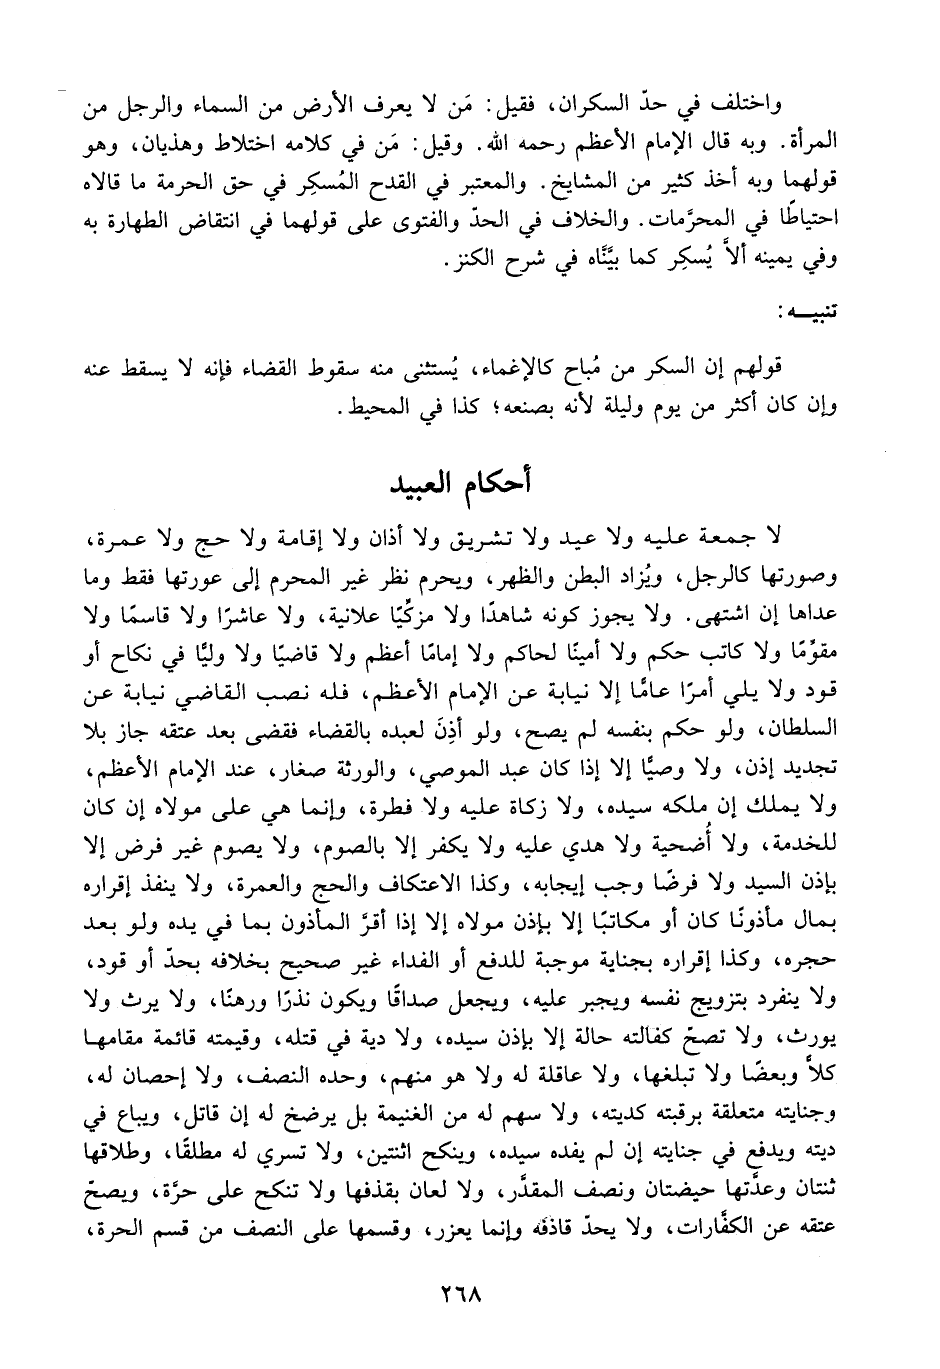 واختلف في حدّ السكران، فقيل: مَن لا يعرف الأرض من السماء والرجل من
المرأة. وبه قال الإمام الأعظم رحمه الله. وقيل: مَن في كلامه اختلاط وهذيان، وهو
قولهما وبه أخذ كثير من المشايخ. والمعتبر في القدح المُسكِر في حق الحرمة ما قالاه
احتياطًا في المحرَّمات. والخلاف في الحدّ والفتوى على قولهما في انتقاض الطهارة به
وفي يمينه ألاَّ يُسكِر كما بيَّنَّاه في شرح الكنز.
تنبيــه:
قولهم إن السكر من مُباح كالإغماء، يُستثنى منه سقوط القضاء فإنه لا يسقط عنه
وإن كان أكثر من يوم وليلة لأنه بصنعه؛ كذا في المحيط.
أحكام العبيد
لا جمعة عليه ولا عيد ولا تشريق ولا أذان ولا إقامة ولا حج ولا عمرة،
وصورتها كالرجل، ويُزاد البطن والظهر، ويحرم نظر غير المحرم إلى عورتها فقط وما
عداها إن اشتهى. ولا يجوز كونه شاهدًا ولا مزكِّيًا علانية، ولا عاشرًا ولا قاسمًا ولا
مقوِّمًا ولا كاتب حكم ولا أمينًا لحاكم ولا إمامًا أعظم ولا قاضيًا ولا وليًّا في نكاح أو
قود ولا يلي أمرًا عامًّا إلا نيابة عن الإمام الأعظم، فله نصب القاضي نيابة عن
السلطان، ولو حكم بنفسه لم يصح، ولو أذِنَ لعبده بالقضاء فقضى بعد عتقه جاز بلا
تجديد إذن، ولا وصيًّا إلا إذا كان عبد الموصي، والورثة صغار، عند الإمام الأعظم،
ولا يملك إن ملكه سيده، ولا زكاة عليه ولا فطرة، وإنما هي على مولاه إن كان
للخدمة، ولا أُضحية ولا هدي عليه ولا يكفر إلا بالصوم، ولا يصوم غير فرض إلا
بإذن السيد ولا فرضًا وجب إيجابه، وكذا الاعتكاف والحج والعمرة، ولا ينفذ إقراره
بمال مأذونًا كان أو مكاتبًا إلا بإذن مولاه إلا إذا أقرَّ المأذون بما في يده ولو بعد
حجره، وكذا إقراره بجناية موجبة للدفع أو الفداء غير صحيح بخلافه بحدّ أو قود،
ولا ينفرد بتزويج نفسه ويجبر عليه، ويجعل صداقًا ويكون نذرًا ورهنًا، ولا يرث ولا
يورث، ولا تصحّ كفالته حالة إلا بإذن سيده، ولا دية في قتله، وقيمته قائمة مقامها
كلاًّ وبعضًا ولا تبلغها، ولا عاقلة له ولا هو منهم، وحده النصف، ولا إحصان له،
وجنايته متعلقة برقبته كديته، ولا سهم له من الغنيمة بل يرضخ له إن قاتل، ويباع في
ديته ويدفع في جنايته إن لم يفده سيده، وينكح اثنتين، ولا تسري له مطلقًا، وطلاقها
ثنتان وعدَّتها حيضتان ونصف المقدَّر، ولا لعان بقذفها ولا تنكح على حرَّة، ويصحّ
عتقه عن الكفَّارات، ولا يحدّ قاذفه وإنما يعزر، وقسمها على النصف من قسم الحرة،
٢٦٨